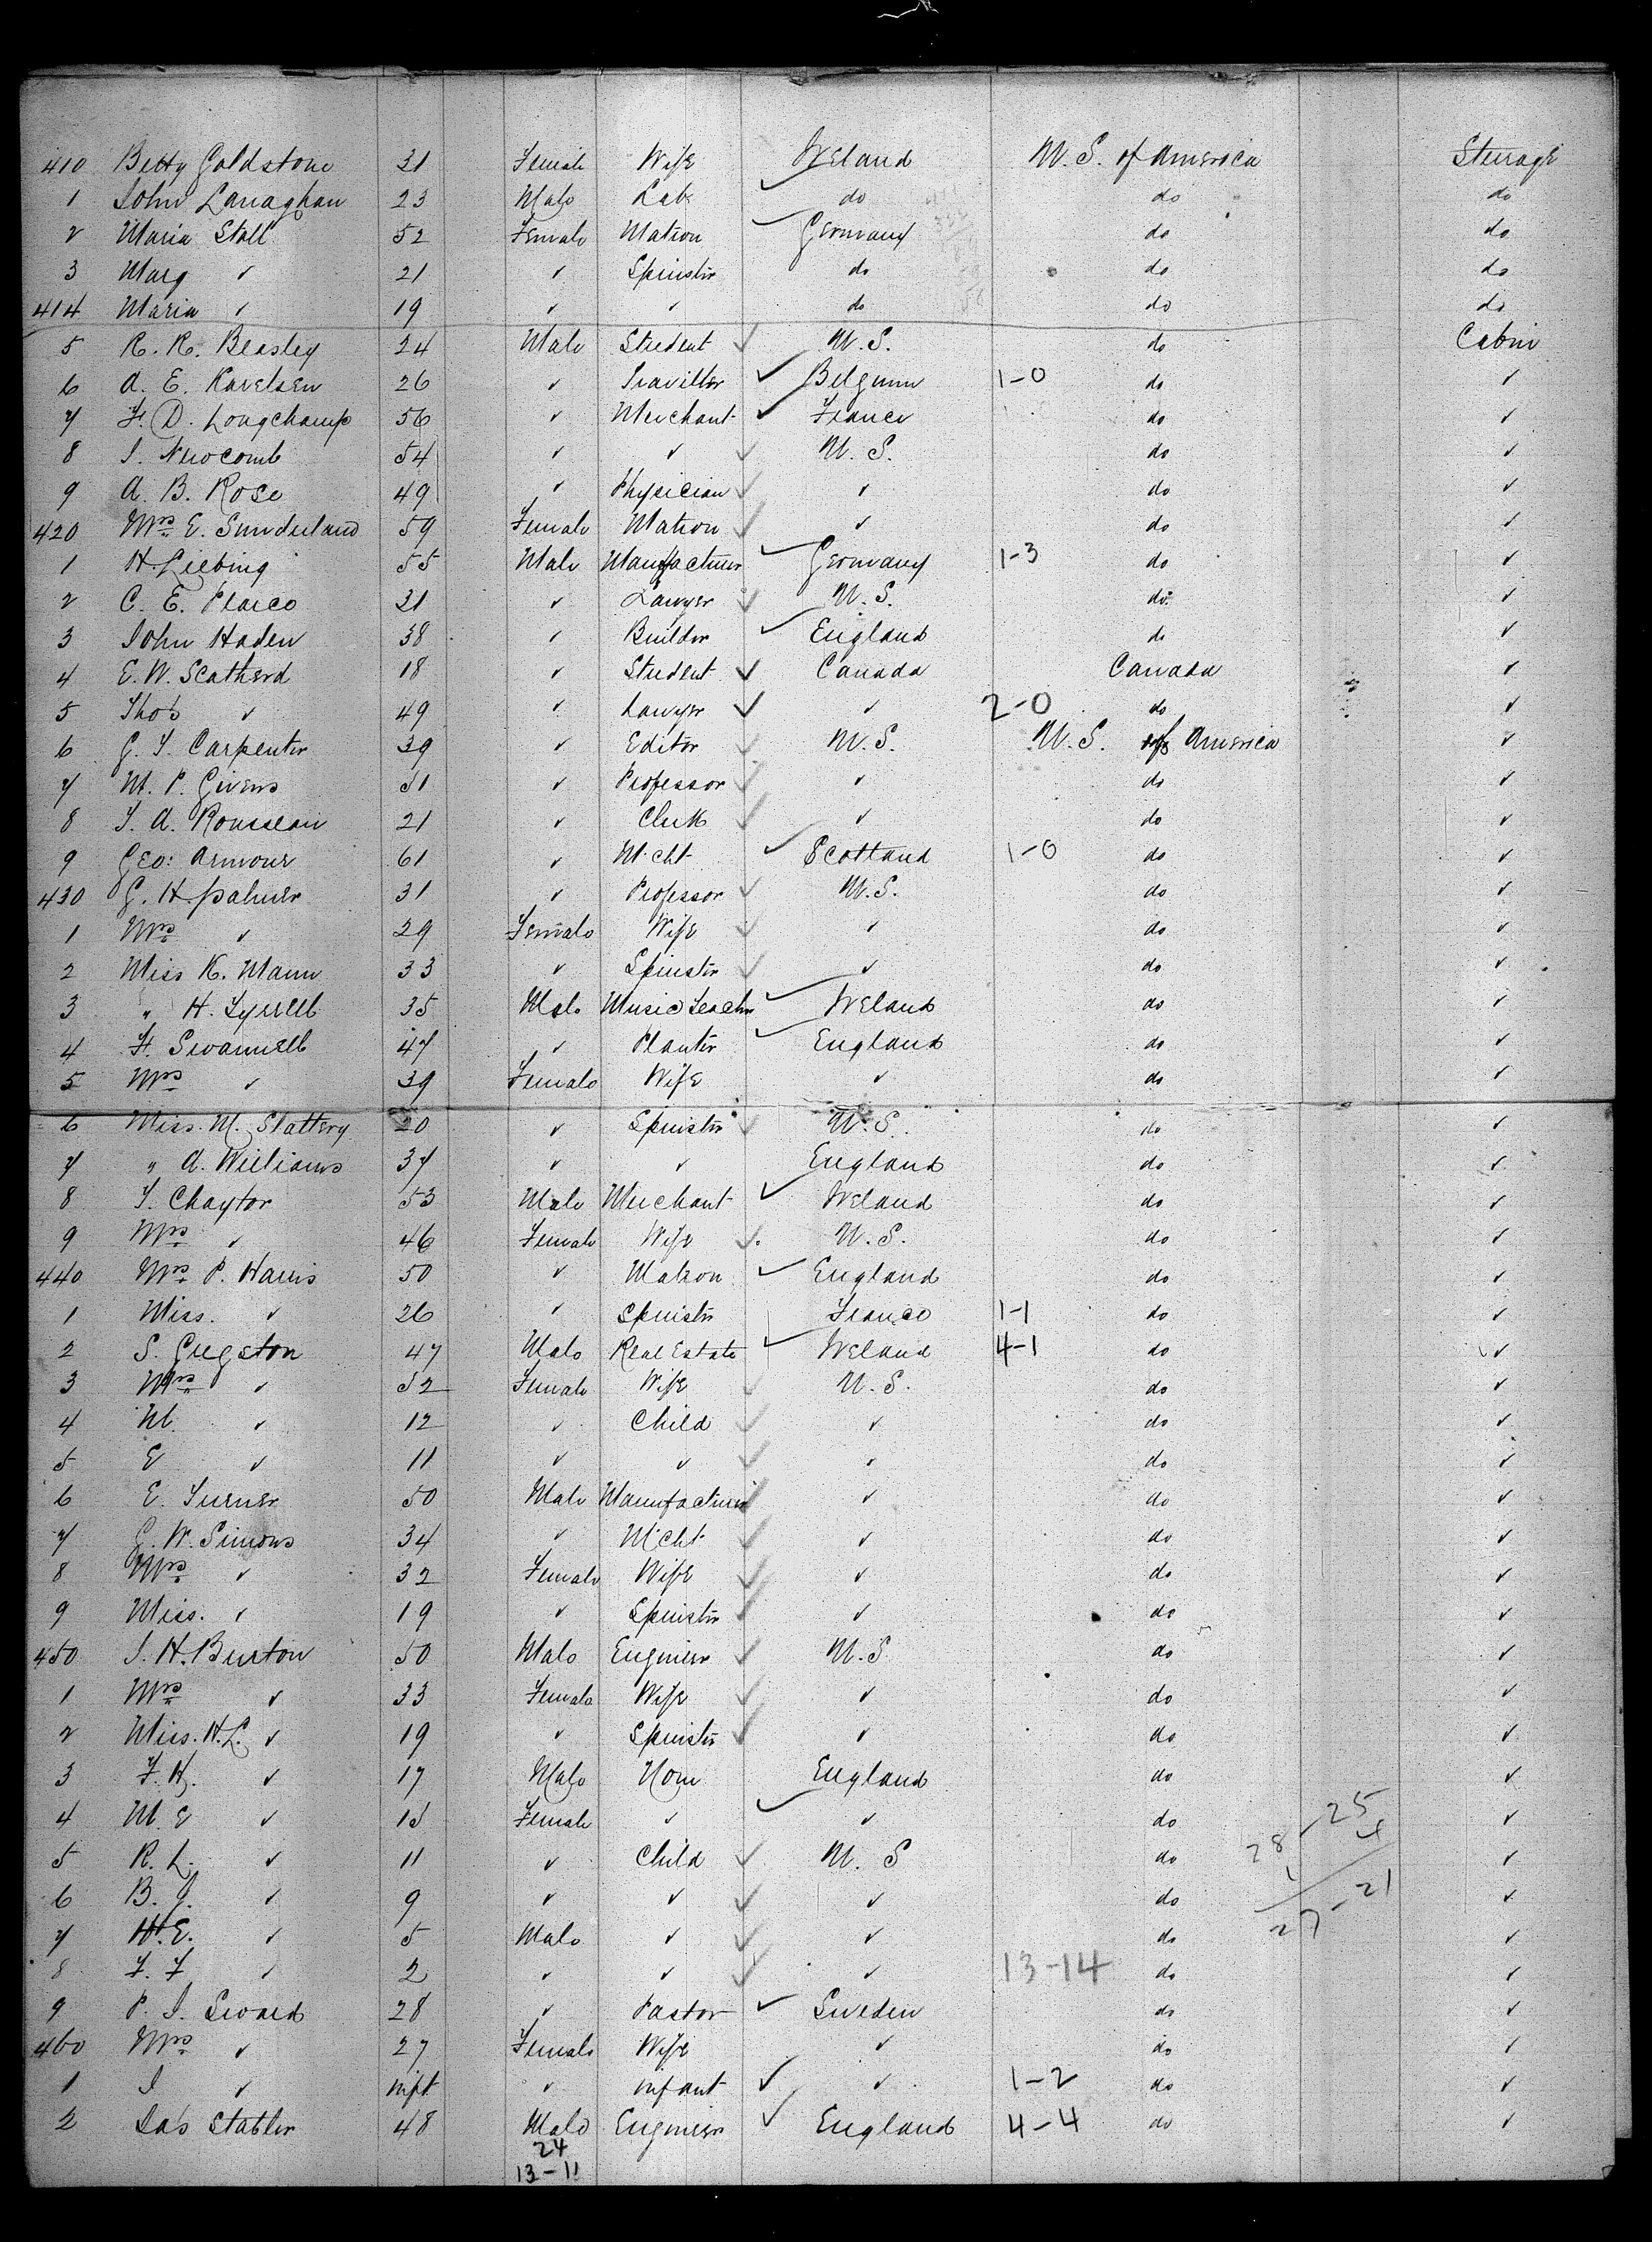 410 Betty Goldstone 31 Female Wife Ireland U.S. of America Steerage
1 John Lanaghan 23 Male Lab. do do do
2 Maria Stoll 52 Female Matron Germany do do
3 Marg " 21 " Spinster do do do
414 Maria " 19 " " do do do
5 R. R. Beasley 24 Male Student U.S. do Cabin
6 A. E. Karelsen 26 " Traveller Belgium 1-0 do "
7 F. D. Longchamp 56 " Merchant France do "
8 J. Newcomb 54 " " U.S. do "
9 A. B. Rose 49 " Physician " do "
420 Mrs E. Sunderland 59 Female Matron " do "
1 H. Liebing 55 Male Manufacturer Germany 1-3 do "
2 C. E. Pearce 31 " Lawyer U.S. do "
3 John Haden 38 " Builder England do "
4 E. W. Scatherd 18 " Student Canada Canada "
5 Thos " 49 " Lawyer " 2-0 do "
6 G. T. Carpenter 39 " Editor U.S. U.S. of America "
7 M. P. Givens 51 " Professor " do "
8 T. A. Rousseau 21 " Clerk " do "
9 Geo: Armour 61 " Mcht Scotland 1-0 do "
430 G. H. Palmer 31 " Professor U.S. do "
1 Mrs " 29 Female Wife " do "
2 Miss K. Mann 33 " Spinster " do "
3 " H. Tyrrell 35 Male Music Teacher Ireland do "
4 F. Swannell 47 " Planter England do "
5 Mrs " 39 Female Wife " do "
6 Miss. M. Slattery 20 " Spinster U.S. do "
7 " A. Williams 37 " " England do "
8 T. Chaytor 53 Male Merchant Ireland do "
9 Mrs " 46 Female Wife U.S. do "
440 Mrs P. Harris 50 " Matron England do "
1 Miss. " 26 " Spinster France 1-1 do "
2 S. Gregston 47 Male Real Estate Ireland 4-1 do "
3 Mrs " 52 Female Wife U.S. do "
4 M. " 12 " Child " do "
5 E " 11 " " " do "
6 E. Turner 50 Male Manufacturer " do "
7 G. W. Simons 34 " Mcht " do "
8 Mrs " 32 Female Wife " do "
9 Miss. " 19 " Spinster " do "
450 J. H. Burton 50 Male Engineer U.S. do "
1 Mrs " 33 Female Wife " do "
2 Miss. H.L. " 19 " Spinster " do "
3 F. H. " 17 Male None England do "
4 M. E " 15 Female " " do "
5 R. L. " 11 " Child U.S do "
6 B. J. " 9 " " " do "
7 H. E. " 5 Male " " do "
8 F. F " 2 " " " 13-14 do "
9 P. J. Sward 28 " Pastor Sweden do "
460 Mrs " 27 Female Wife " do "
1 J " inft " infant " 1-2 do "
2 Jas Stabler 48 Male Engineer England 4-4 do "
24
13-11
28 - 25
1 4
27 - 21